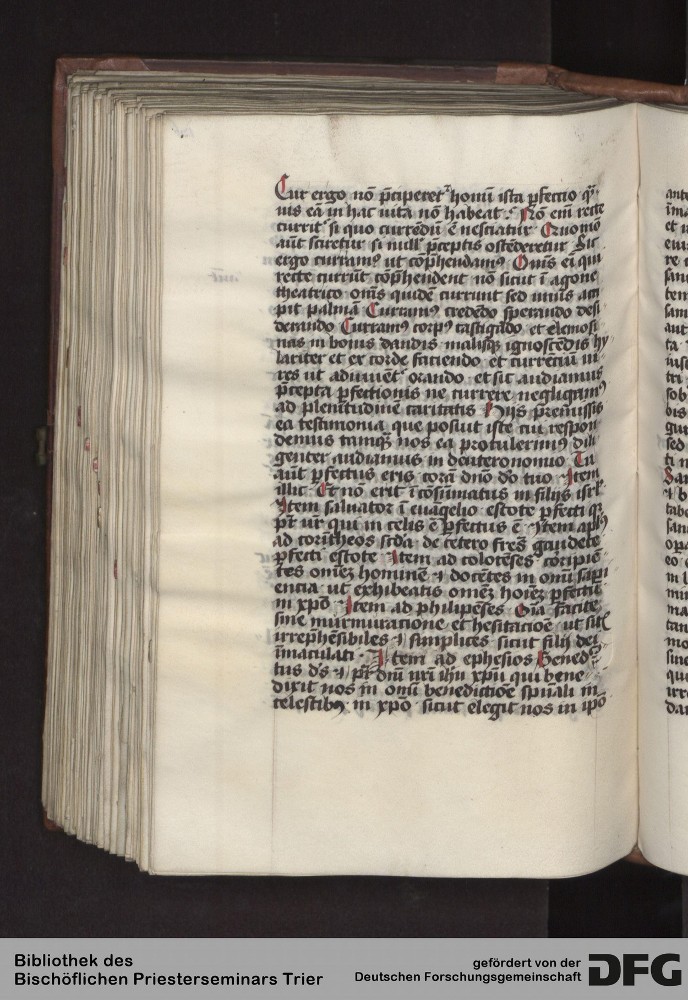 Cur ergo nō p̄ciperetᷣ homī ista pfectio qͣꝫ
uis eā in hac uita nō habeat · Nō em̄ recte
currit᷑ si quo currēdū ē nesciatur Quomō
aūt sciretur si null᷒ p̄ceptis ostēderetur Sic
ergo curramꝰ ut cōp̄hendamꝰ Om̄s ei qui
recte currūt cōp̄hendent nō sicut ī agone
theatrico om̄s quidē currunt sed unus acci
pit palmā Curramꝰ credēdo sperando desi
derando Curramꝰ corpꝰ castigādo et elemosi
nas in bonis dandis malisqꝫ ignoscēdis hy
lariter et ex corde faciendo et currētiū ui
res ut adiuuent᷑ orando et sic audiamus
p̄cepta pfectionis ne currere negligamꝰ
ad plenitudinē caritatis Hijs p̄missis
ea testimonia que posuit iste cui respon
demus tamqꝫ nos ea protulerimꝰ dili
genter audiamus in deuteronomio Tu
aūt pfectus eris corā dn̄o dō tuo Item
illic Et nō erit ī cōsūmatus in filijs isrl̄
Item saluator ī euāgelio estote pfecti qꝫ
pr̄ ur̄ qui in celis ē pfectus ē Item apl̄ꝰ
ad corītheos scd̄a de cetero fr̄es gaudete
pfecti estote Item ad colocēses corripiē
tes omēꝫ hominē ⁊ docētes in omī sapi
entia ut exhibeatis omēꝫ hoīeꝫ pfectū
in xpō Item ad philipēses Oīa facite
sine murmuracione et hesitacioē ut sitꝭ
irrep̄hēsibiles ⁊ simplices sicut filij dei
īmaculati Item ad ephesios Benedꝰ
tus d̄s ⁊ pr̄ dn̄i nr̄i ihū xpī qui bene
dixit nos in omī benedictiōe spūali in
celestibꝰ in xpō sicut elegit nos in ipō
Bibliothek des
Bischöflichen Priesterseminars Trier
gefördert von der
Deutschen Forschungsgemeinschaft
DFG